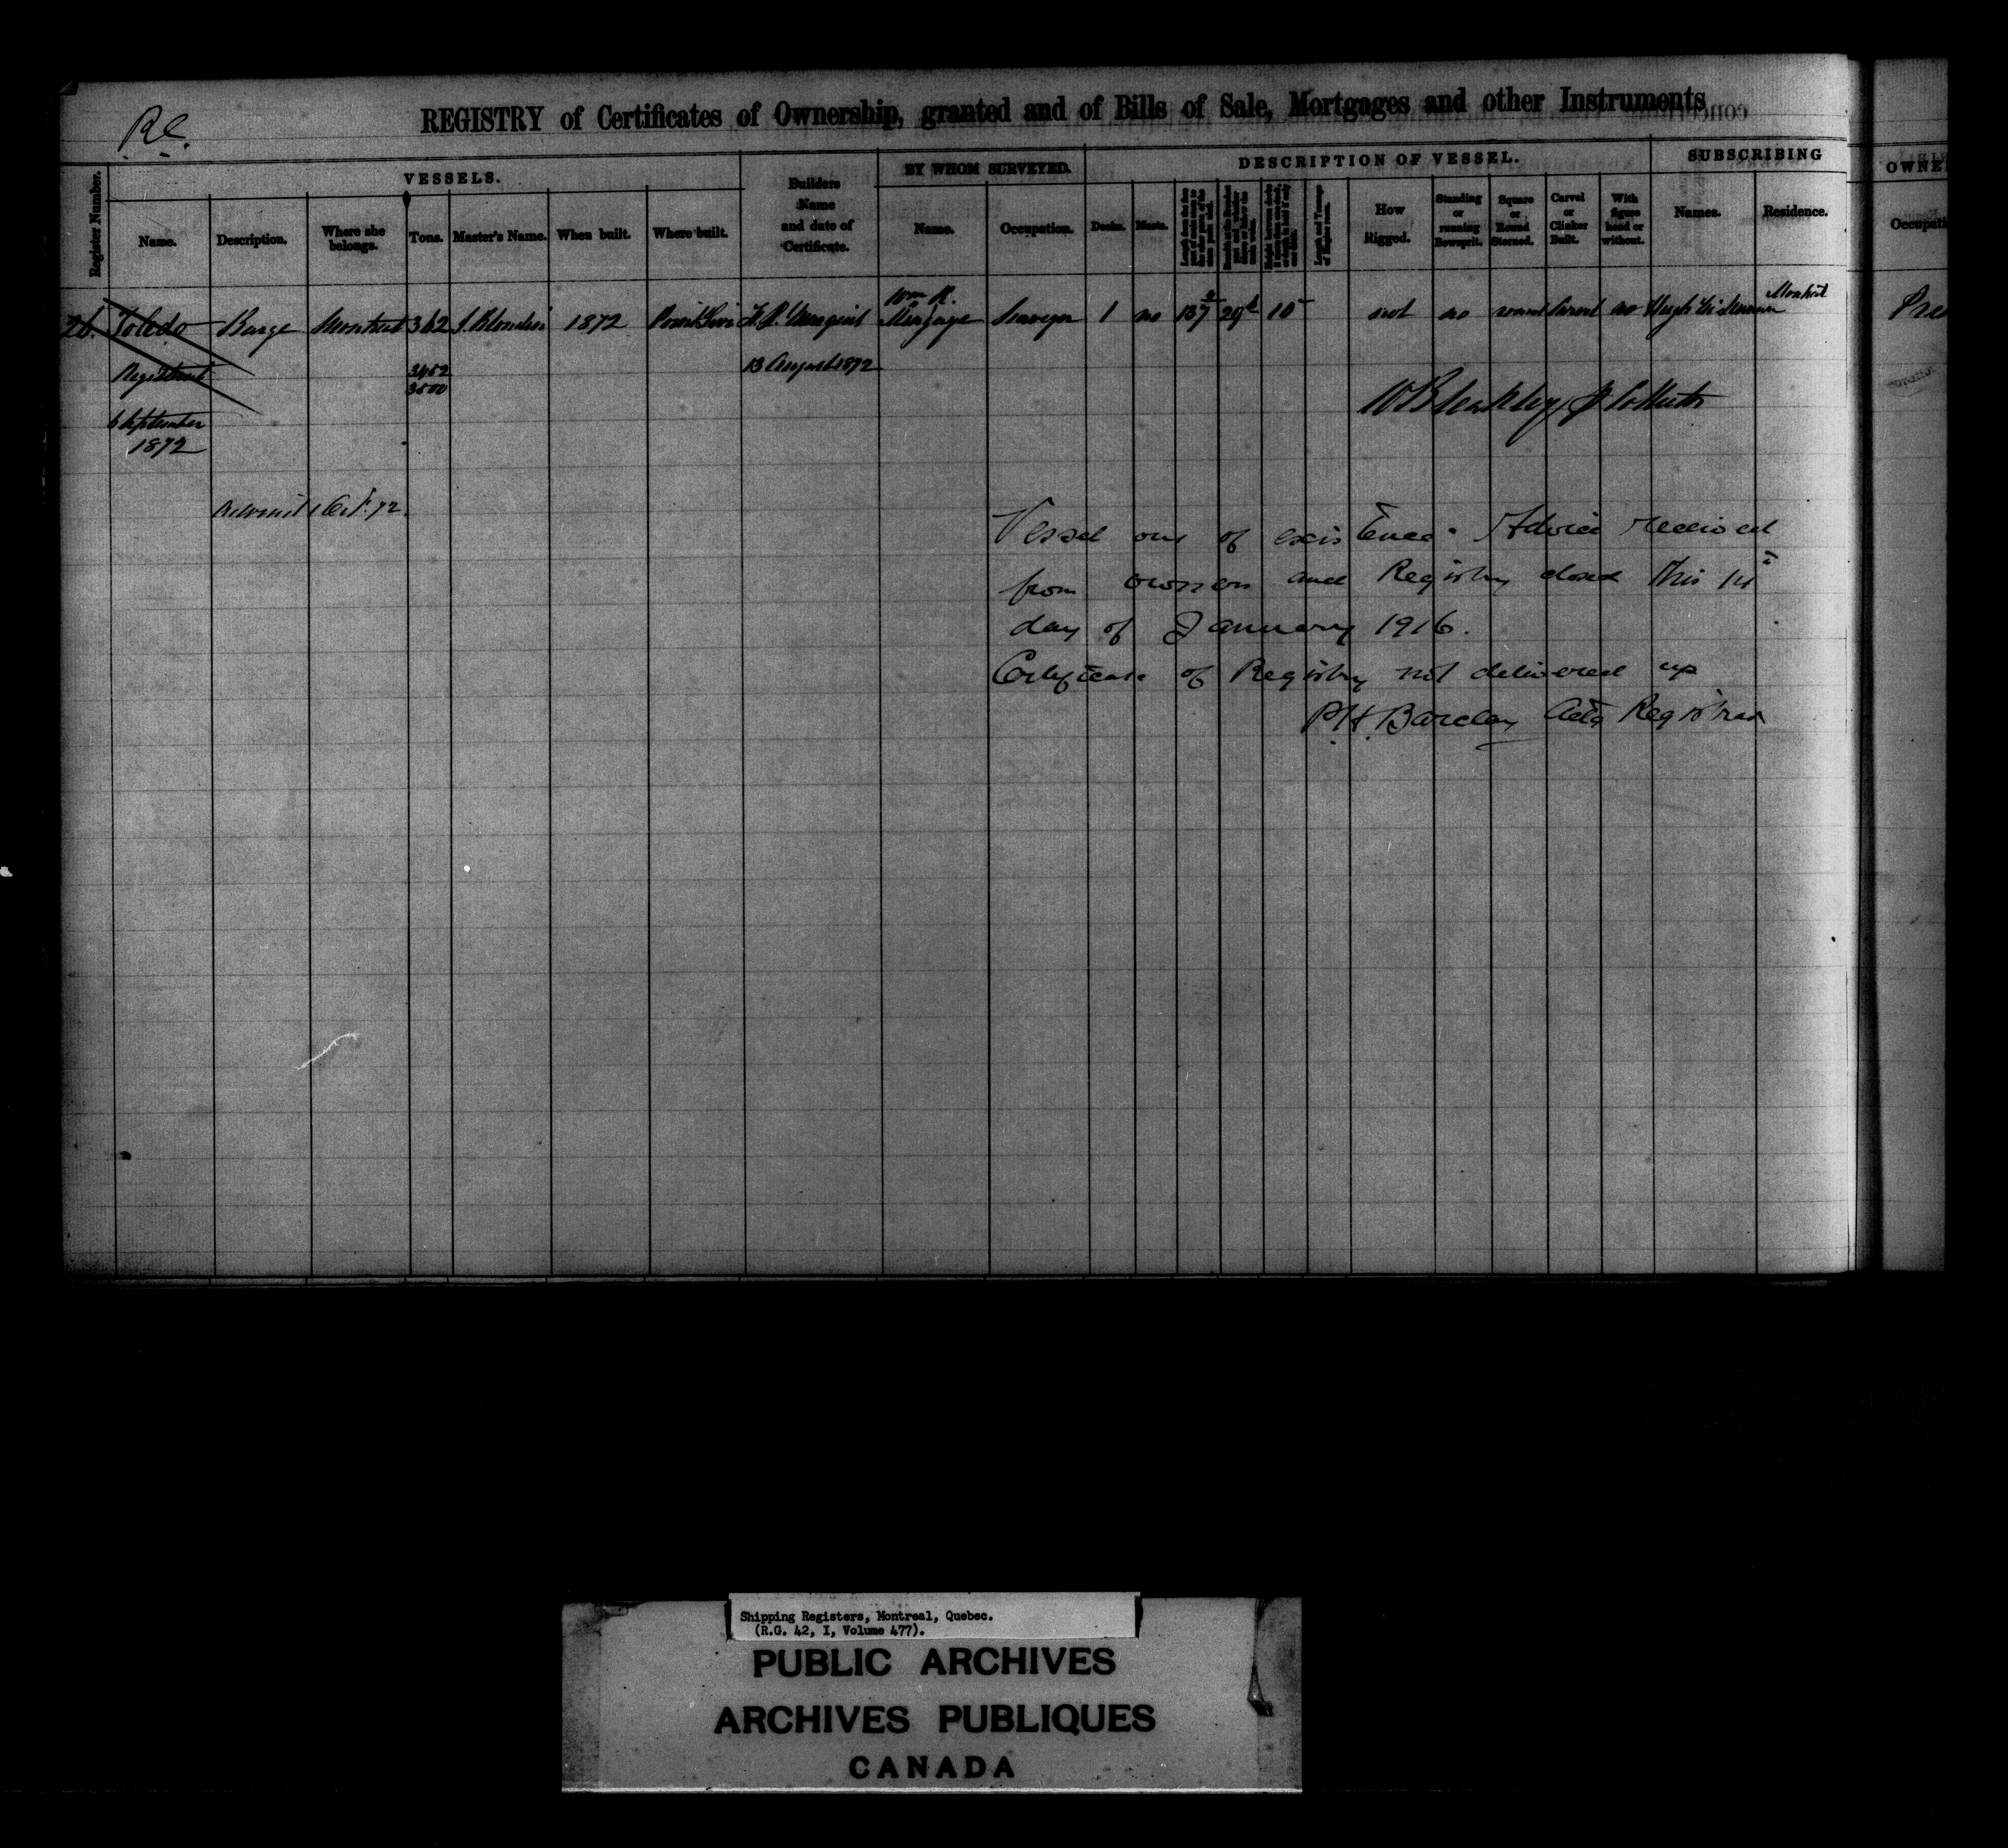 Re.
REGISTRY of Certificates of Ownership, granted and of Bills of Sale, Mortgages and other Instruments
Register Number.
VESSELS.
Name.
Description.
Where she belongs.
Tons.
Master's Name.
When built.
Where built.
Builders Name and date of Certificate.
BY WHOM SURVEYED.
Name.
Occupation.
DESCRIPTION OF VESSEL.
Decks.
Masts.
How Rigged.
Standing or running Bowsprit.
Square or Round Sterned.
Carvel or Clinker Built.
With figure head or without.
SUBSCRIBING
Names.
Residence.
OWNE
Occupati
26. Toledo Barge Montreal 362 J. Blondin 1872 Wm R. Surveyor 1 no 137 29 10 not no round no Hugh Montreal Pre
3452
3500
13 August 1872
6 September
1872
1 Oct. 72.
Vessel out of existence. Advice received
from owners and Registry closed this
day of January 1916.
Certificate of Registry not delivered up
P.H. Barclay Actg Registrar
Shipping Registers, Montreal, Quebec.
(R.G. 42, I, Volume 477).
PUBLIC ARCHIVES
ARCHIVES PUBLIQUES
CANADA